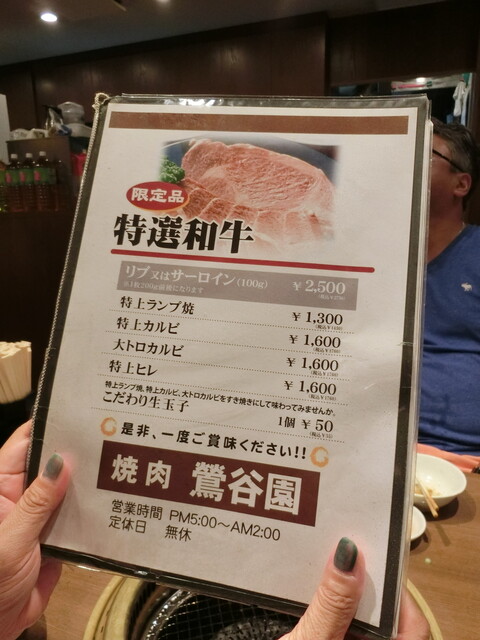 限定品
特選和牛
リブ又はサーロイン(100g) ¥2,500
特上ランプ焼 ¥1,300
特上カルビ ¥1,600
大トロカルビ ¥1,600
特上ヒレ ¥1,600
特上ランプ焼、特上カルビ、大トロカルビをすき焼きにして味わってみませんか。
こだわり生玉子 1個 ¥50
是非、一度ご賞味ください!!
焼肉 鶯谷園
営業時間 PM5:00~AM2:00
定休日 無休